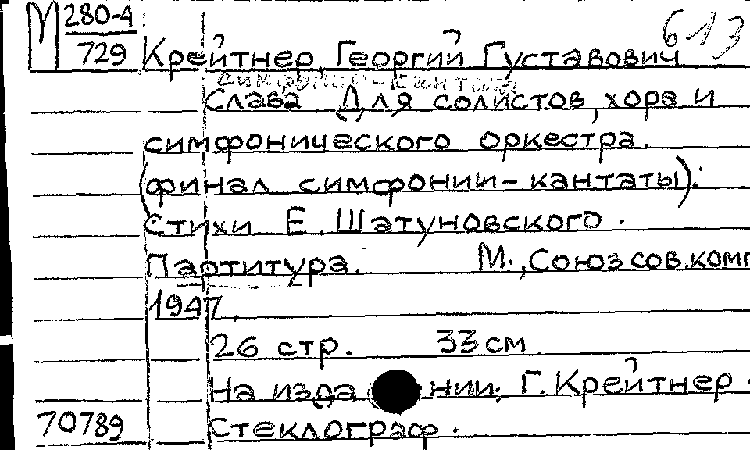 М 280-4
729
613
Крейтнер, Георгий Густавович
симфония-кантата
Слава Для солистов, хора и
симфонического оркестра.
(финал симфонии-кантаты).
Стихи Е. Шатуновского.
Партитура. М., Союз сов. комп
1947.
26 стр. 33 см
На изда нии: Г. Крейтнер.
70789 Стеклограф.